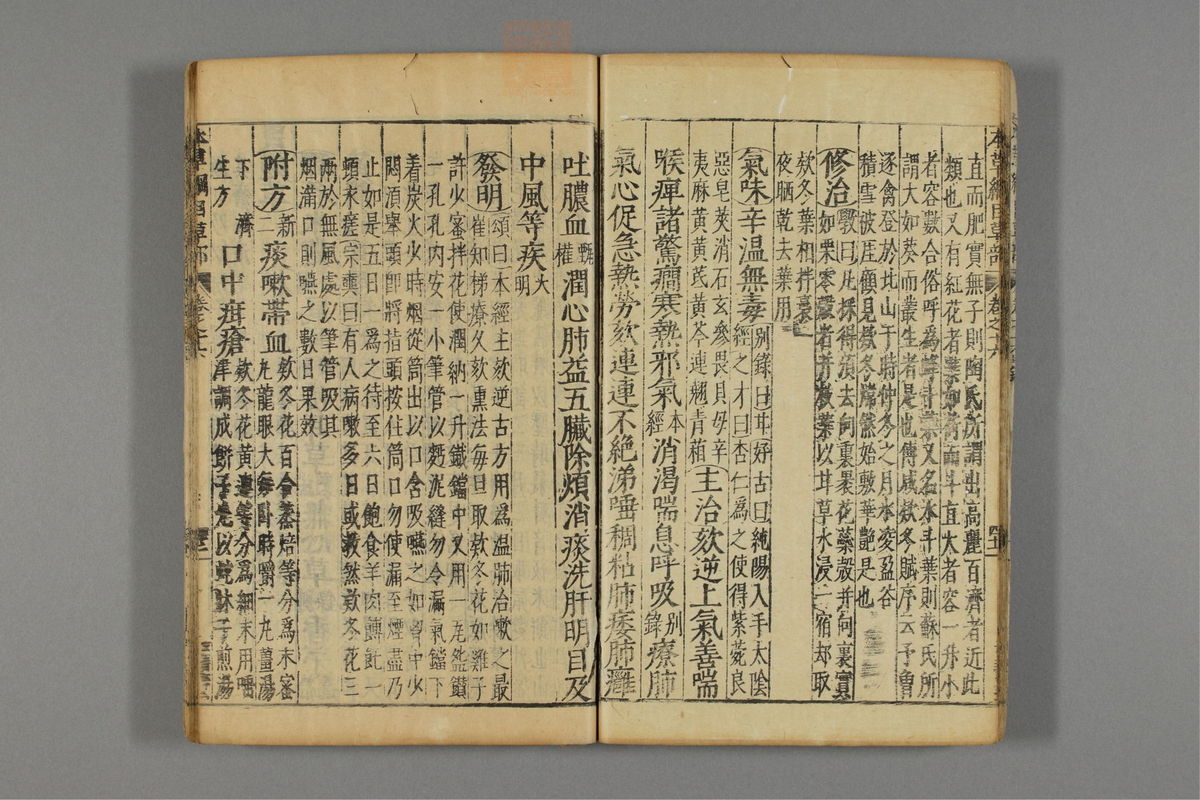 直而肥實無子則陶氏所謂出高麗百濟者近此
類也又有紅花者葉如荷而斗直大者容一升小
者容數合俗呼爲蜂斗葉又名水斗葉則蘇氏所
謂大如葵而叢生者是也傅咸欵冬賦序云予曾
逐禽登於北山于時仲冬之月冰凌盈谷
積雪被崖顧見欵冬煒然始敷華艷是也
修治 斅曰凡採得須去向裏裹花蘂殼并向裏實
如栗零殼者并枝葉以甘草水浸一宿却取
欵冬葉相拌裛
夜晒乾去葉用
氣味辛温無毒 别錄曰甘好古曰純陽入手太陰
經之才曰杏仁爲之使得紫菀良
惡皂莢消石玄參畏貝母辛
夷麻黄黄芪黄芩連翹青葙
主治欬逆上氣善喘
喉痺諸驚癎寒熱邪氣 本經 消渴喘息呼吸 别錄 療肺
氣心促急熱勞欬連連不絶涕唾稠粘肺痿肺癰
吐膿血 甄權 潤心肺益五臟除煩消痰洗肝明目及
中風等疾 大明
發明 頌曰本經主欬逆古方用爲温肺治嗽之最
崔知悌療久欬熏法每旦取欵冬花如雞子
許少蜜拌花使潤納一升鐵鐺中又用一瓦盌鑽
一孔孔内安一小筆管以麪泥縫勿令漏氣鐺下
着炭火少時烟從筒出以口含吸嚥之如胸中少
悶須舉頭即將指頭按住筒口勿使漏至煙盡乃
止如是五日一爲之待至六日飽食羊肉餺飥一
頓永瘥宗奭曰有人病嗽多日或教然欵冬花三
兩於無風處以筆管吸其
烟滿口則嚥之數日果效
附方 新二 痰嗽帯血 欵冬花百合蒸焙等分爲末蜜
丸龍眼大每卧時嚼一丸薑湯
下 濟生方 口中疳瘡 欵冬花黄連等分爲細末用唾
津調成餅子先以蛇牀子煎湯
本草綱目草部
卷之十六
本草綱目草部
卷之十六